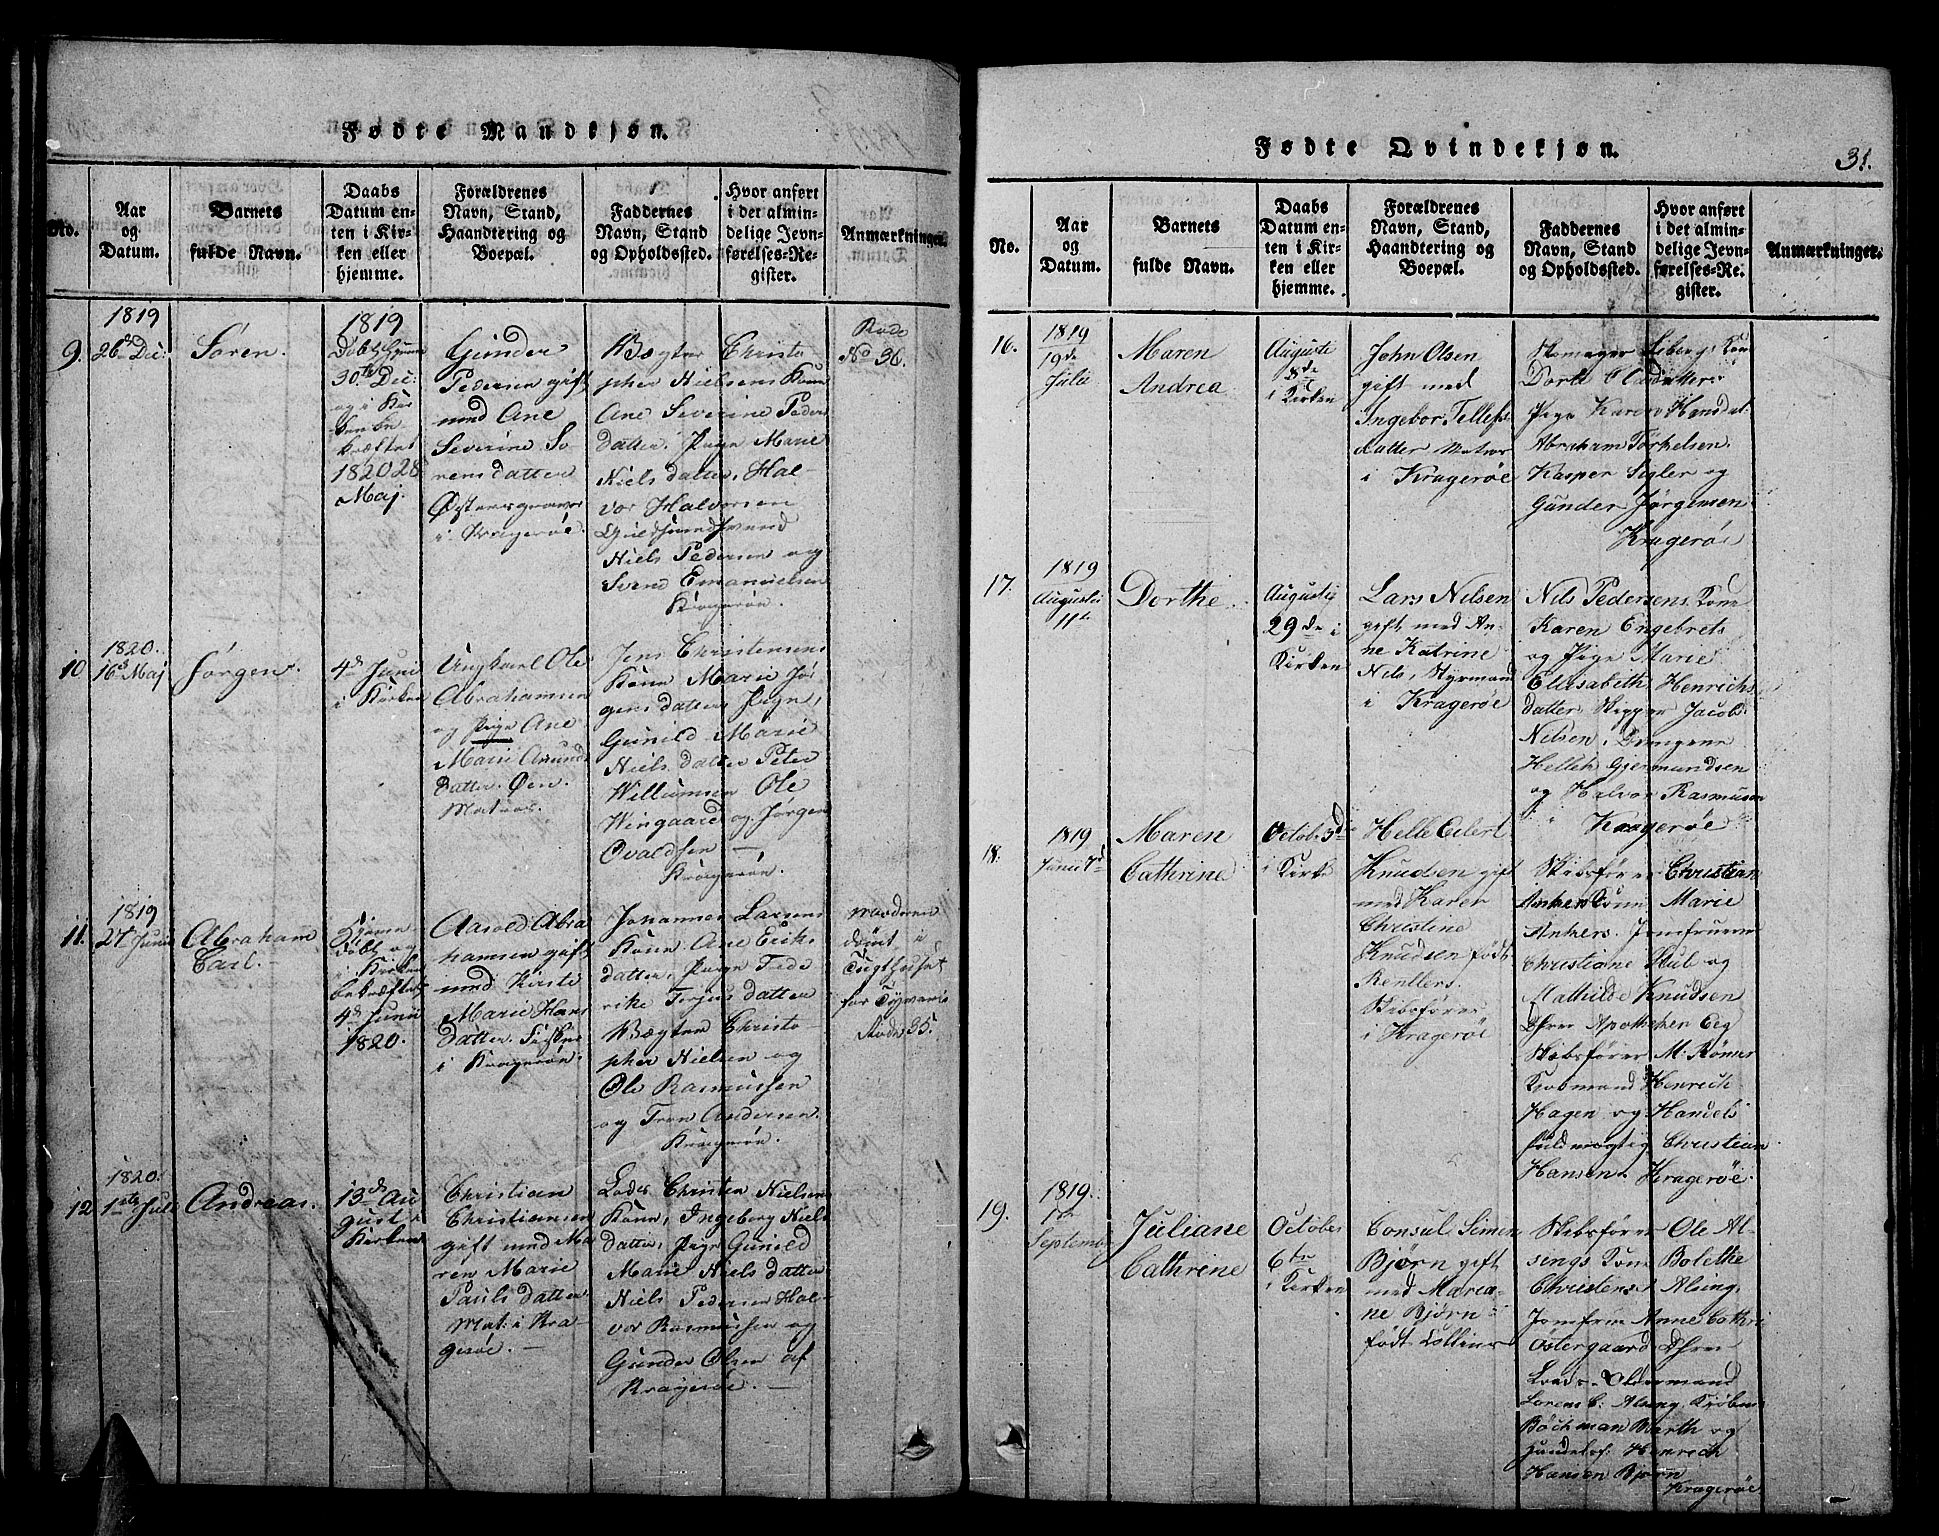 Fødte Mandkjøn.
No.
Aar
og
Datum.
Barnets
fulde Navn.
Daabs
Datum en-
ten i Kir-
ken eller
hjemme.
Forældrenes
Navn, Stand,
Haandtering og
Boepæl.
Faddernes
Navn, Stand
og Opholdssted.
Hvor anført
i det almin-
delige Jevn-
førelses-Re-
gister.
Anmærkninger.
9.
1819
26 Dec:
Søren.
1819
30te Dec:
og i Kir
ken be
kræftet
1820 28
Maj.
Gunder
Pedersen gift
med Ane
Severine Sø
rensdatter
i Kragerøe.
Christo-
pher Nielsens Kone
Ane Severine Peders
datter. Pige Marie
Nielsdatter, Hal-
vor Halvorsen
Niels Pedersen og
Svend Emanuelsen
Kragerøe.
No 36.
10
1820.
16 Maj
Jørgen.
4de Juni
i Kirken
Ungkarl Ole
Abrahamsen
og Pige Ane
Marie Amunds
datter. Øen.
Matros.
Jens Christensens
Kone Marie Jør
gensdatter Pige,
Gunild Marie
Nielsdatter Peter
Willumsen Ole
Wingaard og Jørgen
Ovaldsen —
Kragerøe.
11.
1819
27 Juni
Abraham
Carl.
Hjemme
døbt og
i Kirken
bekræftet
4de Junii
1820.
Aasold Abra
hamsen gift
med Kirsti
Marie Hans
datter.
i Kragerøe.
Johannes Larsens
Kone Ane Eriks
datter, Pige Frede
rike Terjusdatter
Christo-
pher Nielsen og
Ole Rasmussen
og Tron Andersen.
Kragerøe.
i
Tugthuset
for Tyverie
35.
12
1820.
1ste Juli
Andreas.
13de Au
gust i
Kirken
Christian
Christiansen
gift med Ma
ren Marie
Pauls datter
Mat: i Kra
gerøe. —
Lods Christen Nielsens
Kone, Ingeborg Niels
datter, Pige Gunild
Marie Nielsdatter
Niels Pedersen Hal-
vor Rasmussen og
Gunder Olsen af
Kragerøe. —
Fødte Qvindekjøn.
31.
No.
Aar
og
Datum.
Barnets
fulde Navn.
Daabs
Datum en-
ten i Kir-
ken eller
hjemme.
Forældrenes
Navn, Stand,
Haandtering og
Boepæl.
Faddernes
Navn, Stand
og Opholdssted.
Hvor anført
i det almin-
delige Jevn-
førelses-Re-
gister.
Anmærkninger.
16.
1819
19de
Julii
Maren
Andrea
Augusti
8de
i Kirken
John Olsen
gift med
Ingebor Tellefs
datter Matros
i Kragerøe
Skomager
Dorte Olsdatter
Pige Karen
Abraham Torkelsen
Kasper Sigler og
Gunder Jørgensen
Kragerøe
17.
1819
Augusti
11te
Dorthe
Augusti
29de i
Kirken
Lars Nilsen
gift med An-
ne Katrine
Nils, Styrmand
i Kragerøe
Nils Pedersens Kone
Karen Engebrets
og Pige Marie
Elisabeth Henrichs
datter Skipper Jacob
Nilsen,
Helleh Gjermundsen
og Halvor Rasmusen
Kragerøe
18.
1819
Junii 7de
Maren
Cathrine
Octob. 3de
i Kirke
Helle Eilert
Knudsen gift
med Karen
Christine
Knudsen født
Rentlers.
Skibsfører
i Kragerøe
Skibsfører Christian
Ankers Kone Marie
Ankers. Jomfruerne
Christiane Hul og
Mathilde Knudsen
Dhrr Apotheker Eeg
Skibsfører M: Rømer
Kiøbmand Henrich
Hagen og Handels
fuldmægtig Christian
Hansen. Kragerøe
19.
1819.
1ste
Septemb
Juliane
Cathrine
October
6te
i Kirken
Consul Simen
Bjørn gift
med Maria-
ne Bjørn
født Collins
Skibsfører Ole Al-
sings Kone Bolethe
Christense Alsing,
Jomfru Anne Cathri
Østergaard Dhrr
Lods-Oldermand
Lorens C: Alsing,
Bøchman Barth og
Henrich
Hansen Bjørn
Kragerøe